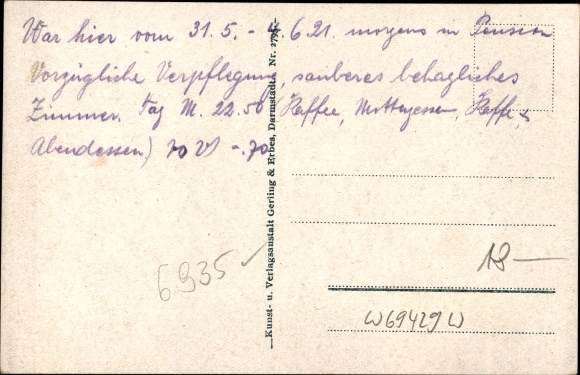 War hier vom 31.5. - 4.6 21. morgens in Pension
Vorzügliche Verpflegung, sauberes behagliches
Zimmer. Tag M. 22.50 (Kaffee, Mittagessen, Kaffe &
Abendessen) 70
Kunst- u. Verlagsanstalt Gerling & Erbes, Darmstadt. Nr.
6935
18—
W69429W